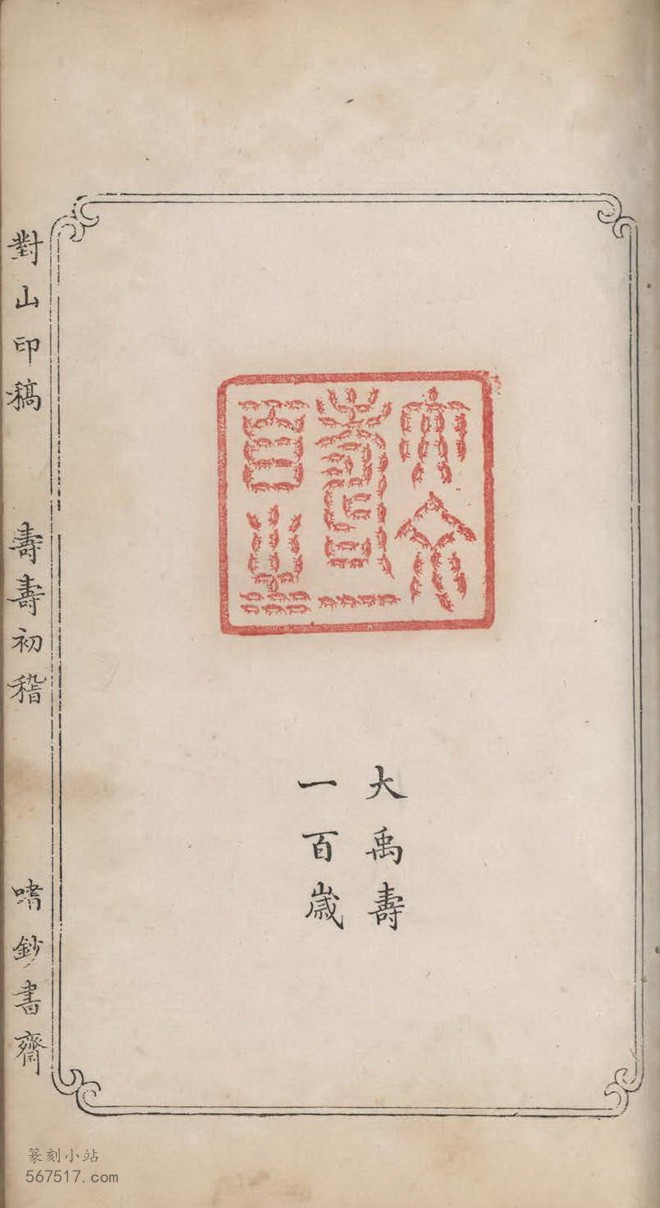 大禹壽
一百歲
對山印稿 壽壽初稽 嗜鈔書齋
篆刻小站
567517.com